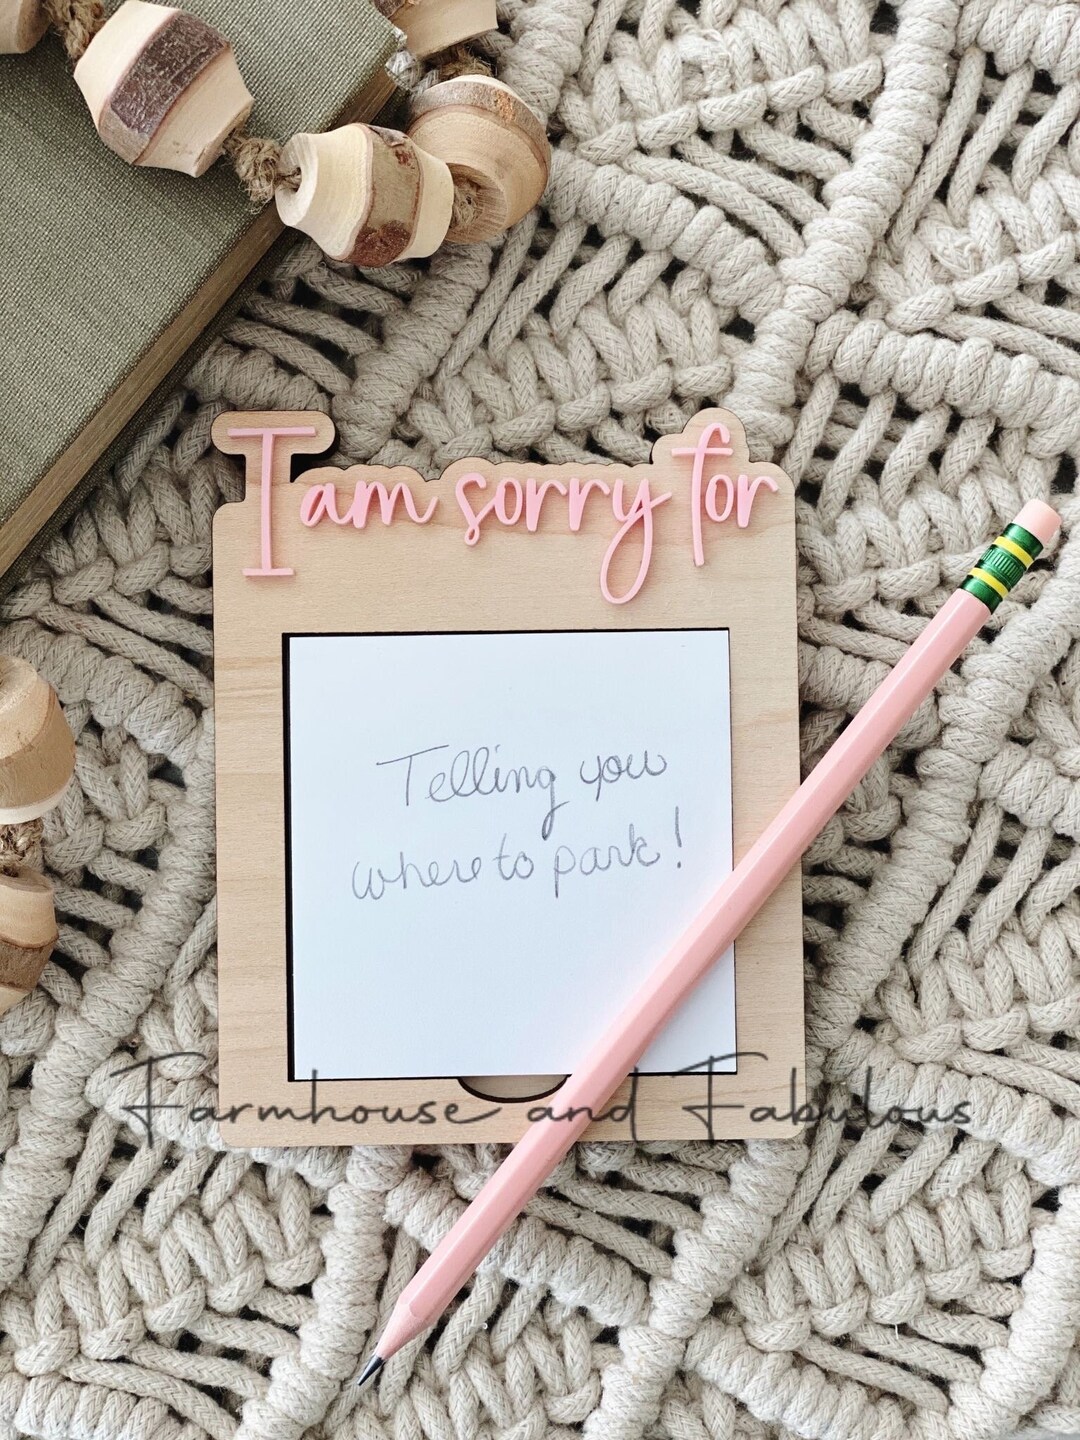 I am sorry for
Telling you
where to park!
Farmhouse and Fabulous